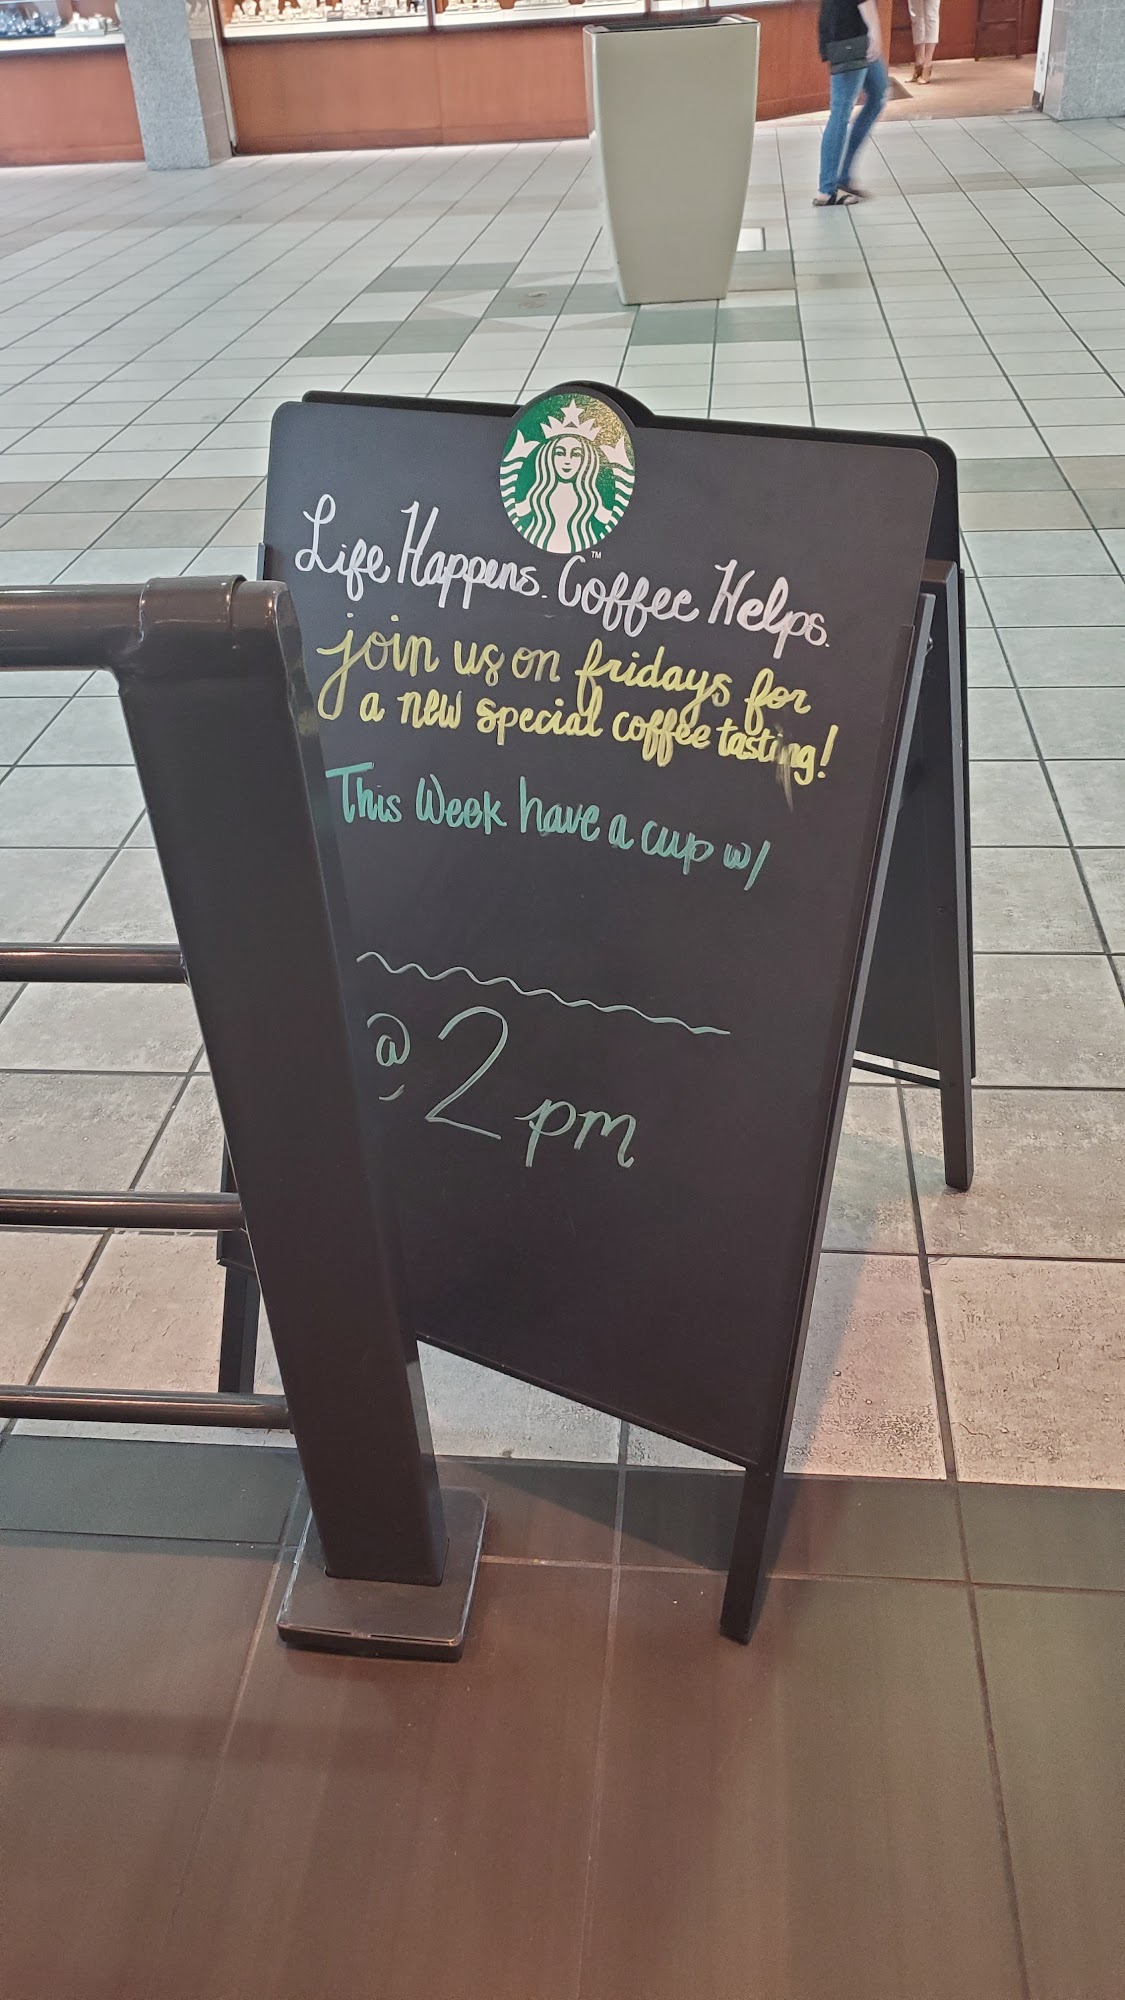 Life Happens. Coffee Helps.
join us on fridays for
a new special coffee tasting!
This Week have a cup w/
@ 2 pm
TM